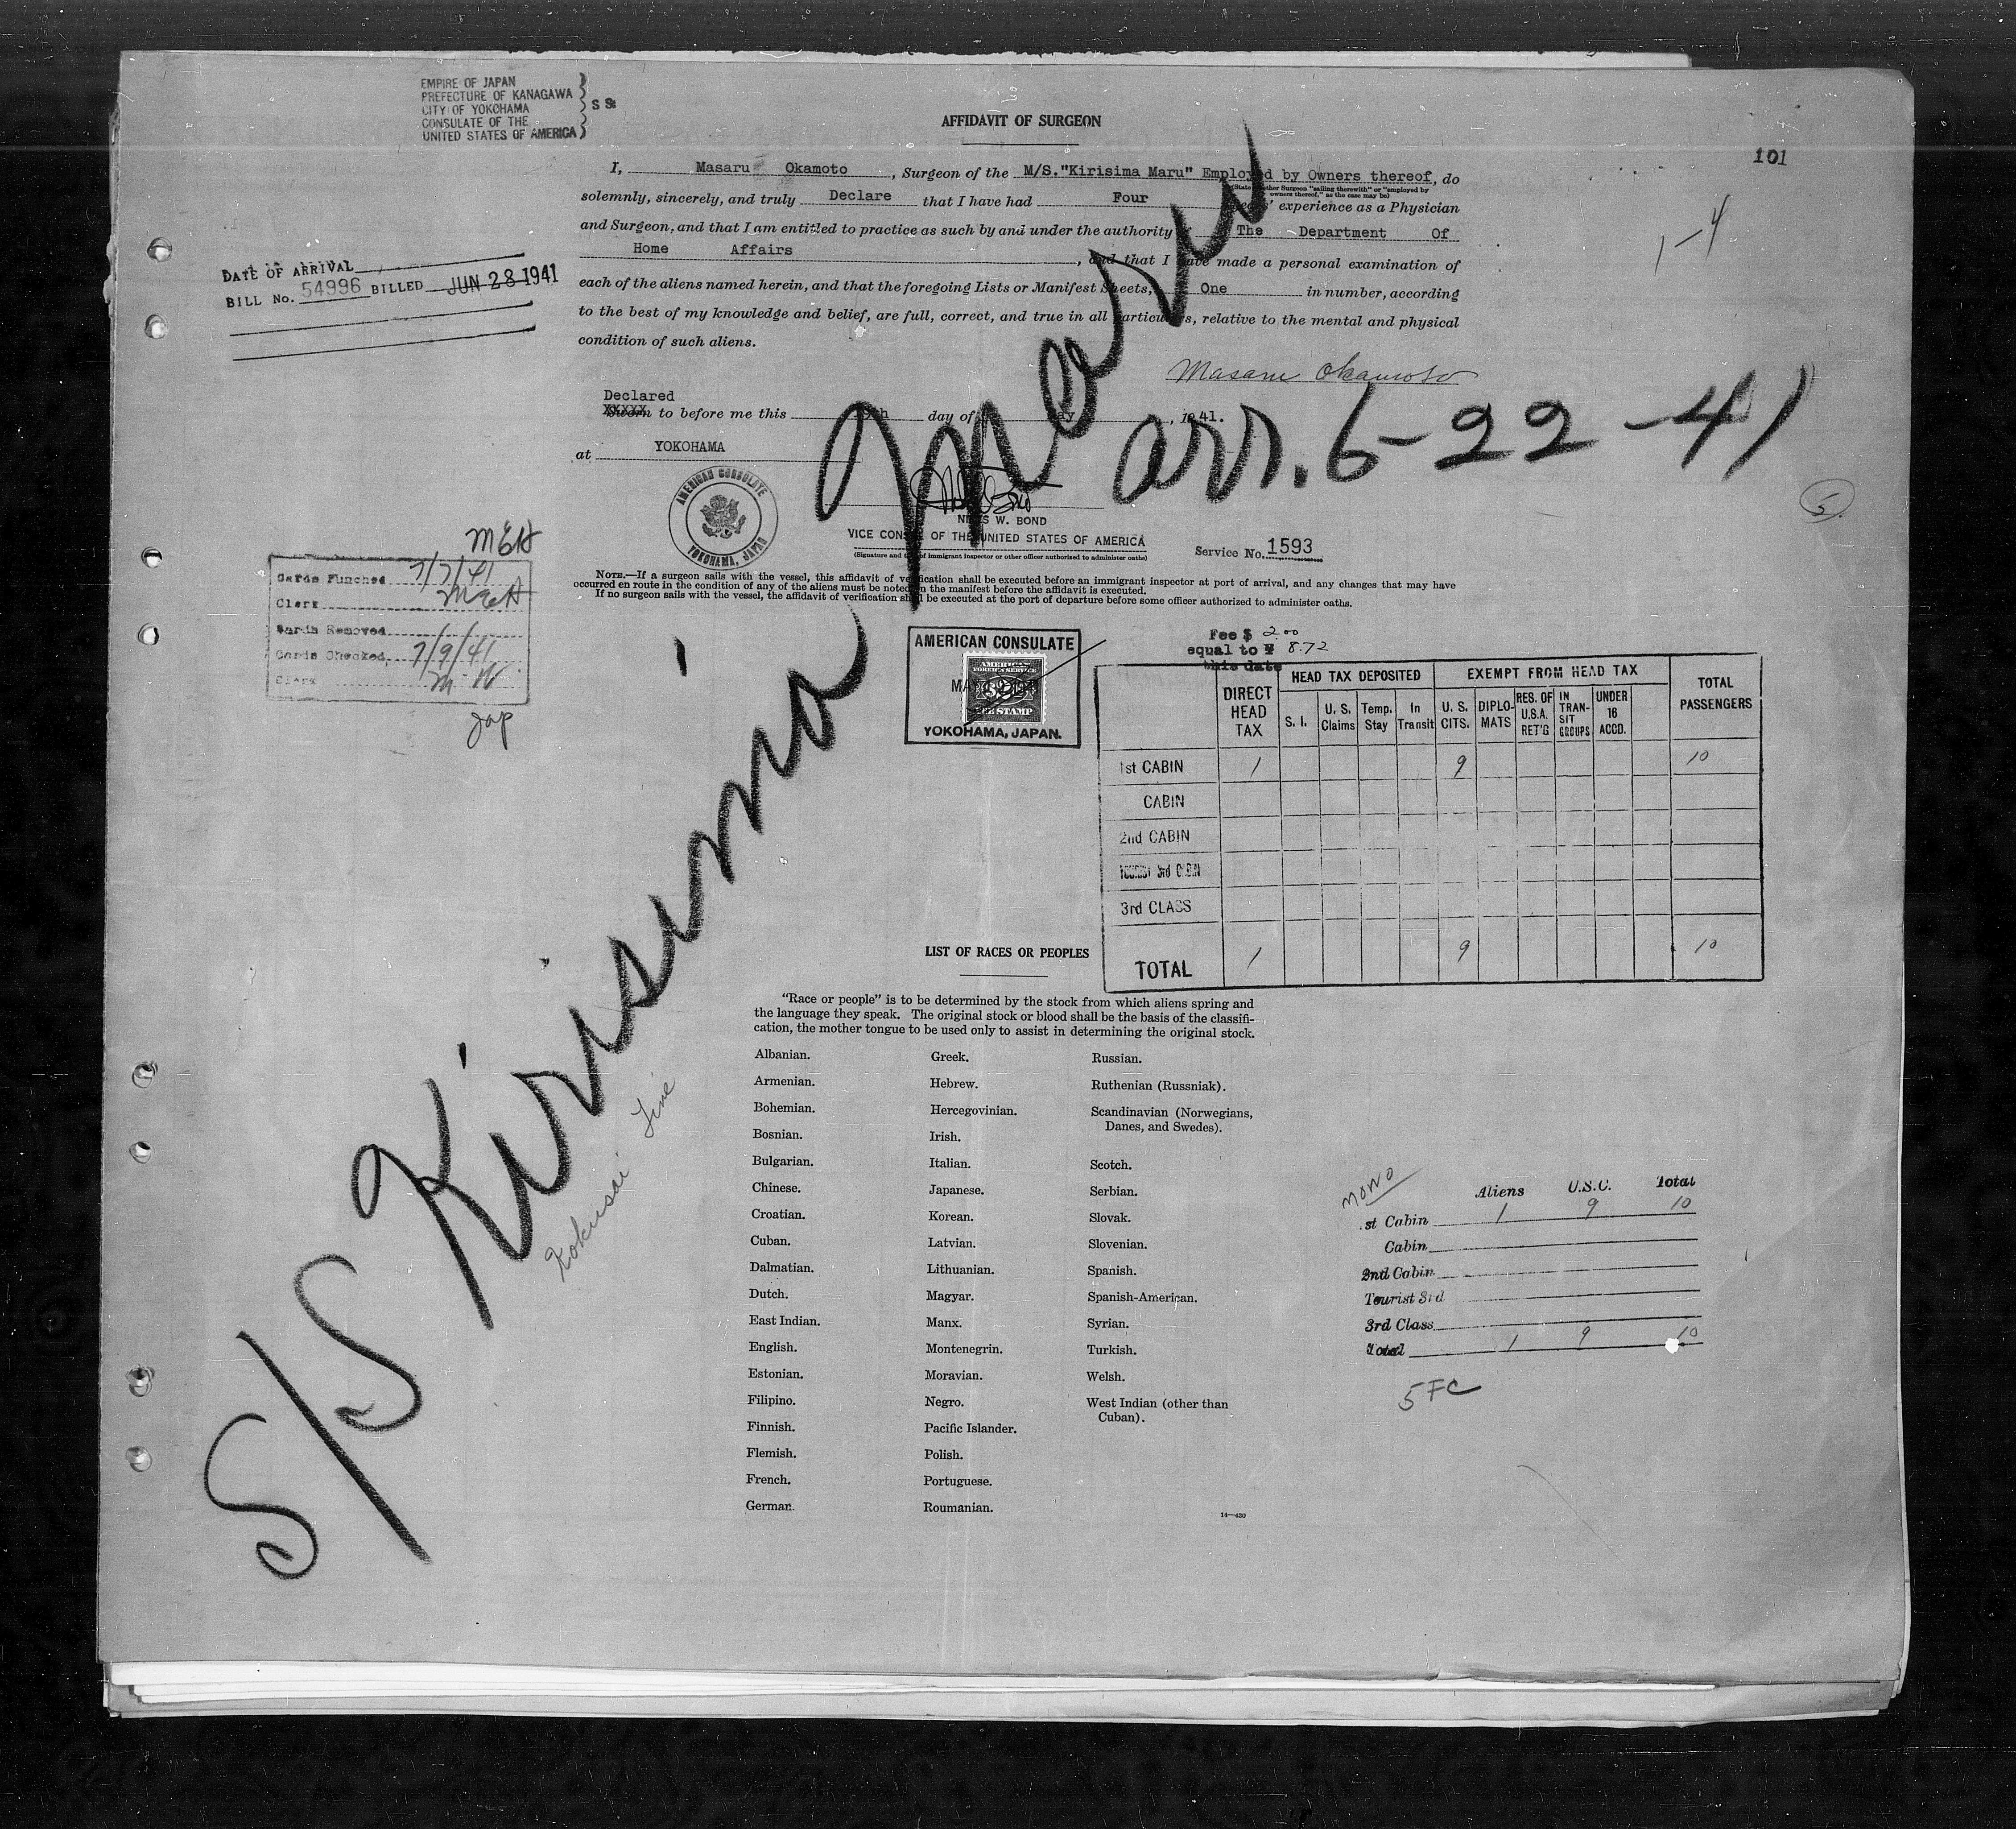 EMPIRE OF JAPAN
PREFECTURE OF KANAGAWA
CITY OF YOKOHAMA
CONSULATE OF THE
UNITED STATES OF AMERICA
SS:
AFFIDAVIT OF SURGEON
101
I, Masaru Okamoto, Surgeon of the M/S."Kirisima Maru" Employed by Owners thereof, do
solemnly, sincerely, and truly Declare that I have had Four years' experience as a Physician
and Surgeon, and that I am entitled to practice as such by and under the authority of The Department Of
Home Affairs, and that I have made a personal examination of
each of the aliens named herein, and that the foregoing Lists or Manifest Sheets, One in number, according
to the best of my knowledge and belief, are full, correct, and true in all particulars, relative to the mental and physical
condition of such aliens.
1-4
DATE OF ARRIVAL
BILL No. 54996 BILLED JUN 28 1941
Masaru Okamoto
Declared
XXXXX
Sworn to before me this day of , 1941.
at YOKOHAMA
arr. 6-22-41
AMERICAN CONSULATE
YOKOHAMA, JAPAN
NILES W. BOND
VICE CONSUL OF THE UNITED STATES OF AMERICA
(Signature and title of immigrant inspector or other officer authorized to administer oaths)
Service No. 1593
5.
NOTE.—If a surgeon sails with the vessel, this affidavit of verification shall be executed before an immigrant inspector at port of arrival, and any changes that may have
occurred en route in the condition of any of the aliens must be noted on the manifest before the affidavit is executed.
If no surgeon sails with the vessel, the affidavit of verification shall be executed at the port of departure before some officer authorized to administer oaths.
MEH
Cards Punched 7/7/41
Clerk MEH
Cards Removed
Cards Checked 7/9/41
Clerk M W
Jap
AMERICAN CONSULATE
AMERICAN
FOREIGN SERVICE
FEE STAMP
YOKOHAMA, JAPAN.
Fee $ 2.00
equal to ¥ 8.72
this date
DIRECT HEAD TAX
HEAD TAX DEPOSITED
S. I.
U. S. Claims
Temp. Stay
In Transit
EXEMPT FROM HEAD TAX
U. S. CITS.
DIPLO-MATS
RES. OF U.S.A. RET'G
IN TRAN-SIT GROUPS
UNDER 16 ACCD.
TOTAL PASSENGERS
1st CABIN 1 9 10
CABIN
2nd CABIN
TOURIST 3rd CABIN
3rd CLASS
TOTAL 1 9 10
S/S Kirisima Maru
Kokusai Line
LIST OF RACES OR PEOPLES
"Race or people" is to be determined by the stock from which aliens spring and
the language they speak. The original stock or blood shall be the basis of the classifi-
cation, the mother tongue to be used only to assist in determining the original stock.
Albanian.
Armenian.
Bohemian.
Bosnian.
Bulgarian.
Chinese.
Croatian.
Cuban.
Dalmatian.
Dutch.
East Indian.
English.
Estonian.
Filipino.
Finnish.
Flemish.
French.
German.
Greek.
Hebrew.
Hercegovinian.
Irish.
Italian.
Japanese.
Korean.
Latvian.
Lithuanian.
Magyar.
Manx.
Montenegrin.
Moravian.
Negro.
Pacific Islander.
Polish.
Portuguese.
Roumanian.
Russian.
Ruthenian (Russniak).
Scandinavian (Norwegians,
Danes, and Swedes).
Scotch.
Serbian.
Slovak.
Slovenian.
Spanish.
Spanish-American.
Syrian.
Turkish.
Welsh.
West Indian (other than
Cuban).
14—430
Aliens U.S.C. Total
1st Cabin 1 9 10
Cabin
2nd Cabin
Tourist 3rd
3rd Class
Total 1 9 10
5 FC